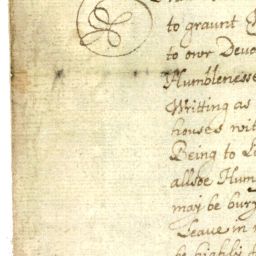 to graunt
to owr Devo
Humblenesse
Writting as
houses wit
Being to L
allsoe Hum
may be bury
Leave in
be highly